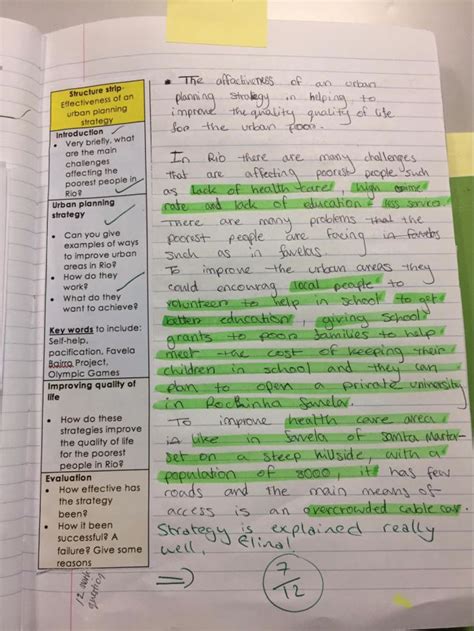 Structure strip-
Effectiveness of an
urban planning
strategy
Introduction
• Very briefly, what
are the main
challenges
affecting the
poorest people in
Rio?
Urban planning
strategy
• Can you give
examples of ways
to improve urban
areas in Rio?
• How do they
work?
• What do they
want to achieve?
Key words to include:
Self-help,
pacification, Favela
Bairro Project,
Olympic Games
Improving quality of
life
• How do these
strategies improve
the quality of life
for the poorest
people in Rio?
Evaluation
• How effective has
the strategy
been?
• How is it been
successful? A
failure? Give some
reasons
12 mark
question
• The affectiveness of an urban
planning strategy in helping to
improve the quality quality of life
for the urban poor.
In Rio there are many challenges
that are affecting poorest people such
as lack of health care, high crime
rate and lack of education + less services
There are many problems that the
poorest people are facing in favelas
such as in favelas
To improve the urban areas they
could encourag local people to
volunteer to help in school to get
better education, giving school
grants to poor families to help
meet the cost of keeping their
children in school and they can
plan to open a private university
in Rochinha favela.
To improve health care area
is like in favela of Santa Marta-
set on a steep hillside, with a
population of 8000, it has few
roads and the main means of
access is an overcrowded cable car.
Strategy is explained really
well, Elina!
=)
7
12